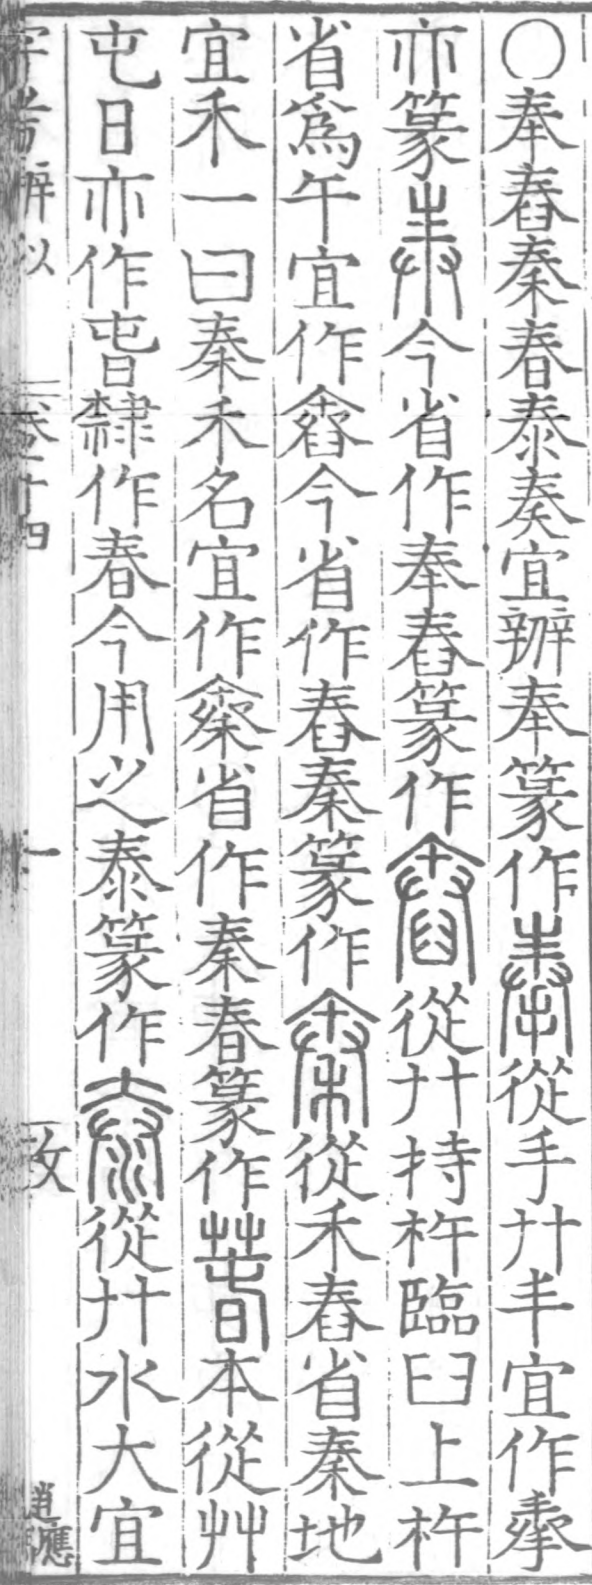 ○奉舂秦春泰奏宜辦奉篆作從手廾丰宜作
亦篆今省作奉舂篆作從廾持杵臨臼上杵
省爲午宜作今省作舂秦篆作從禾舂省秦地
宜禾一曰秦禾名宜作省作秦春篆作本從艸
屯日亦作旾隸作春今用之泰篆作從廾水大宜